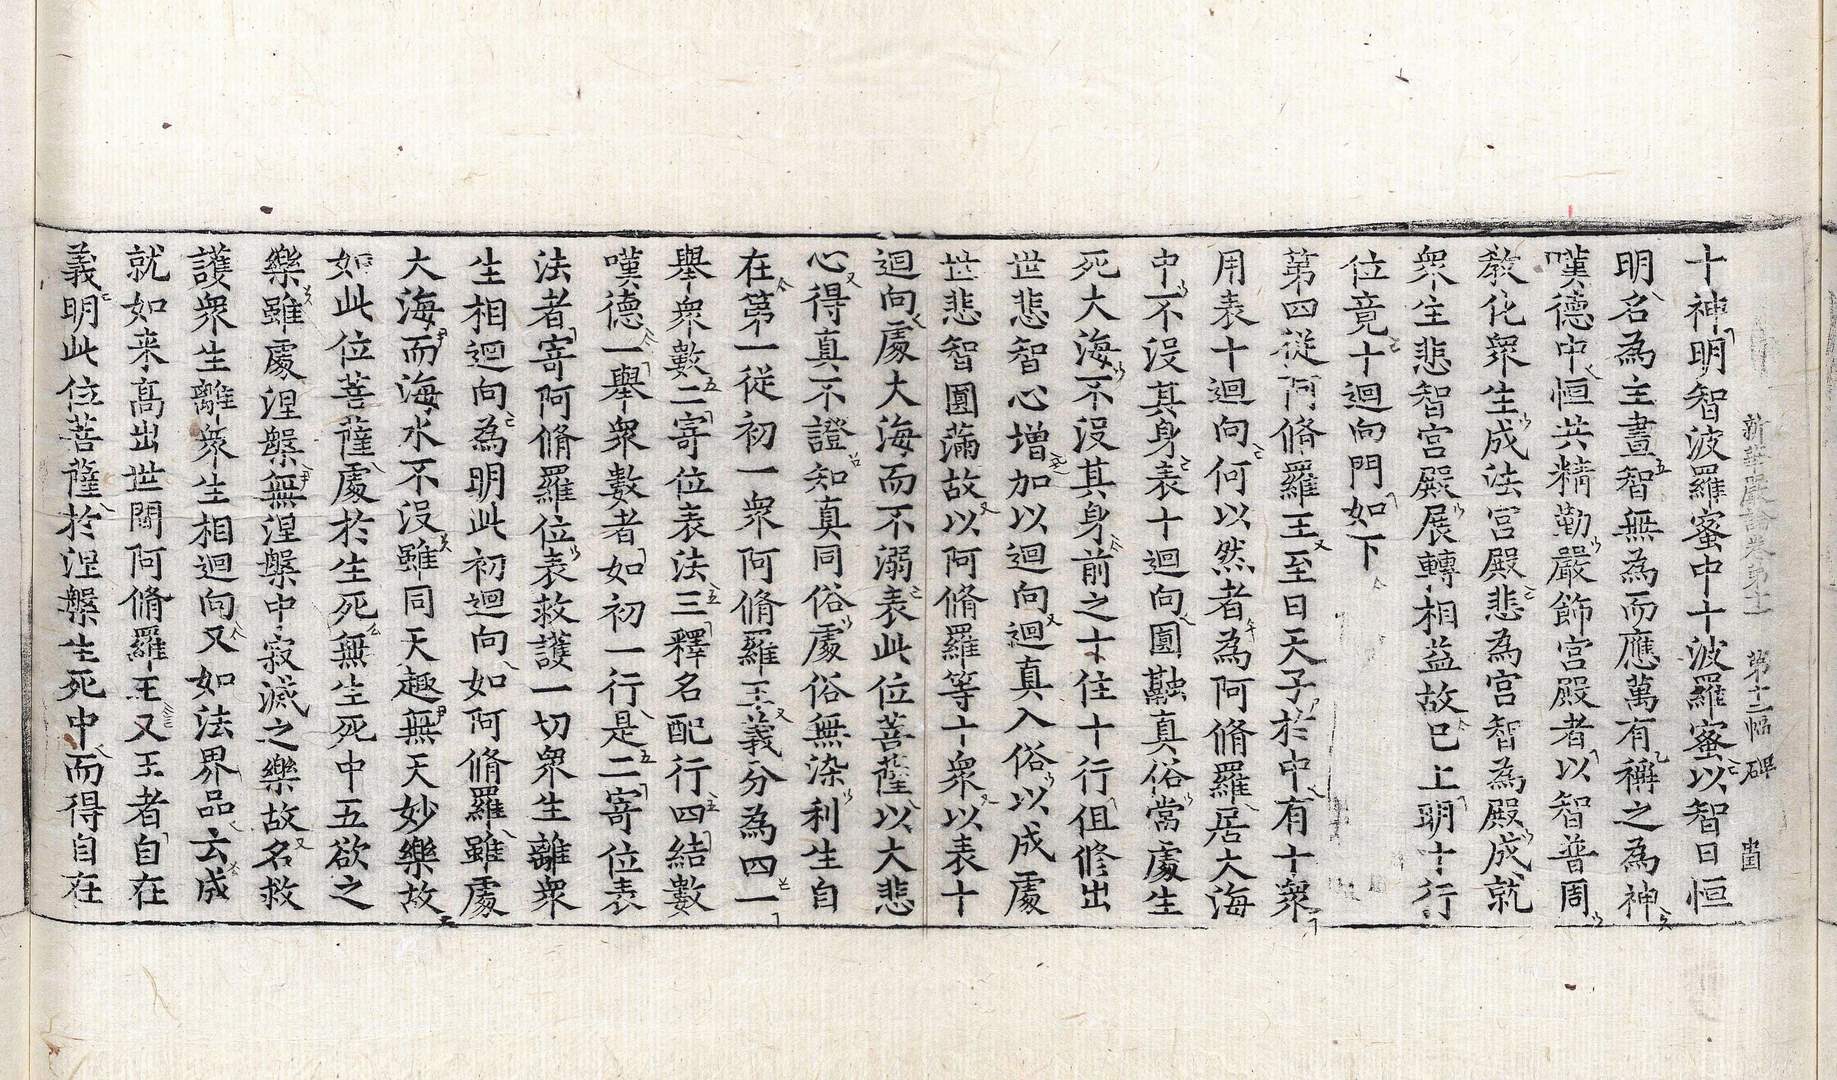 新華嚴論卷第十一 第十二幅 碑
十神明智波羅蜜中十波羅蜜以智日恒
明名為主晝智無為而應萬有稱之為神
嘆德中恒共精勤嚴飾宮殿者以智普周
教化衆生成法宮殿悲為宮智為殿成就
衆生悲智宮殿展轉相益故已上明十行
位竟十迴向門如下
第四從阿脩羅王至日天子於中有十衆
用表十迴向何以然者為阿脩羅居大海
中不沒其身表十迴向圓融真俗當處生
死大海不沒其身前之十住十行但修出
世悲智心增加以迴向迴真入俗以成處
世悲智圓滿故以阿脩羅等十衆以表十
迴向處大海而不溺表此位菩薩以大悲
心得真不證知真同俗處俗無染利生自
在第一從初一衆阿脩羅王義分為四一
舉衆數二寄位表法三釋名配行四結數
嘆德一舉衆數者如初一行是二寄位表
法者寄阿脩羅位表救護一切衆生離衆
生相迴向為明此初迴向如阿脩羅雖處
大海而海水不沒雖同天趣無天妙樂故
如此位菩薩處於生死無生死中五欲之
樂雖處涅槃無涅槃中寂滅之樂故名救
護衆生離衆生相迴向又如法界品云成
就如来高出世間阿脩羅王又王者自在
義明此位菩薩於涅槃生死中而得自在